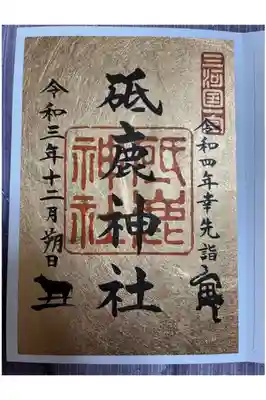 三河国一宮
令和四年幸先詣
砥鹿神社
砥鹿神社
令和三年十二月朔日